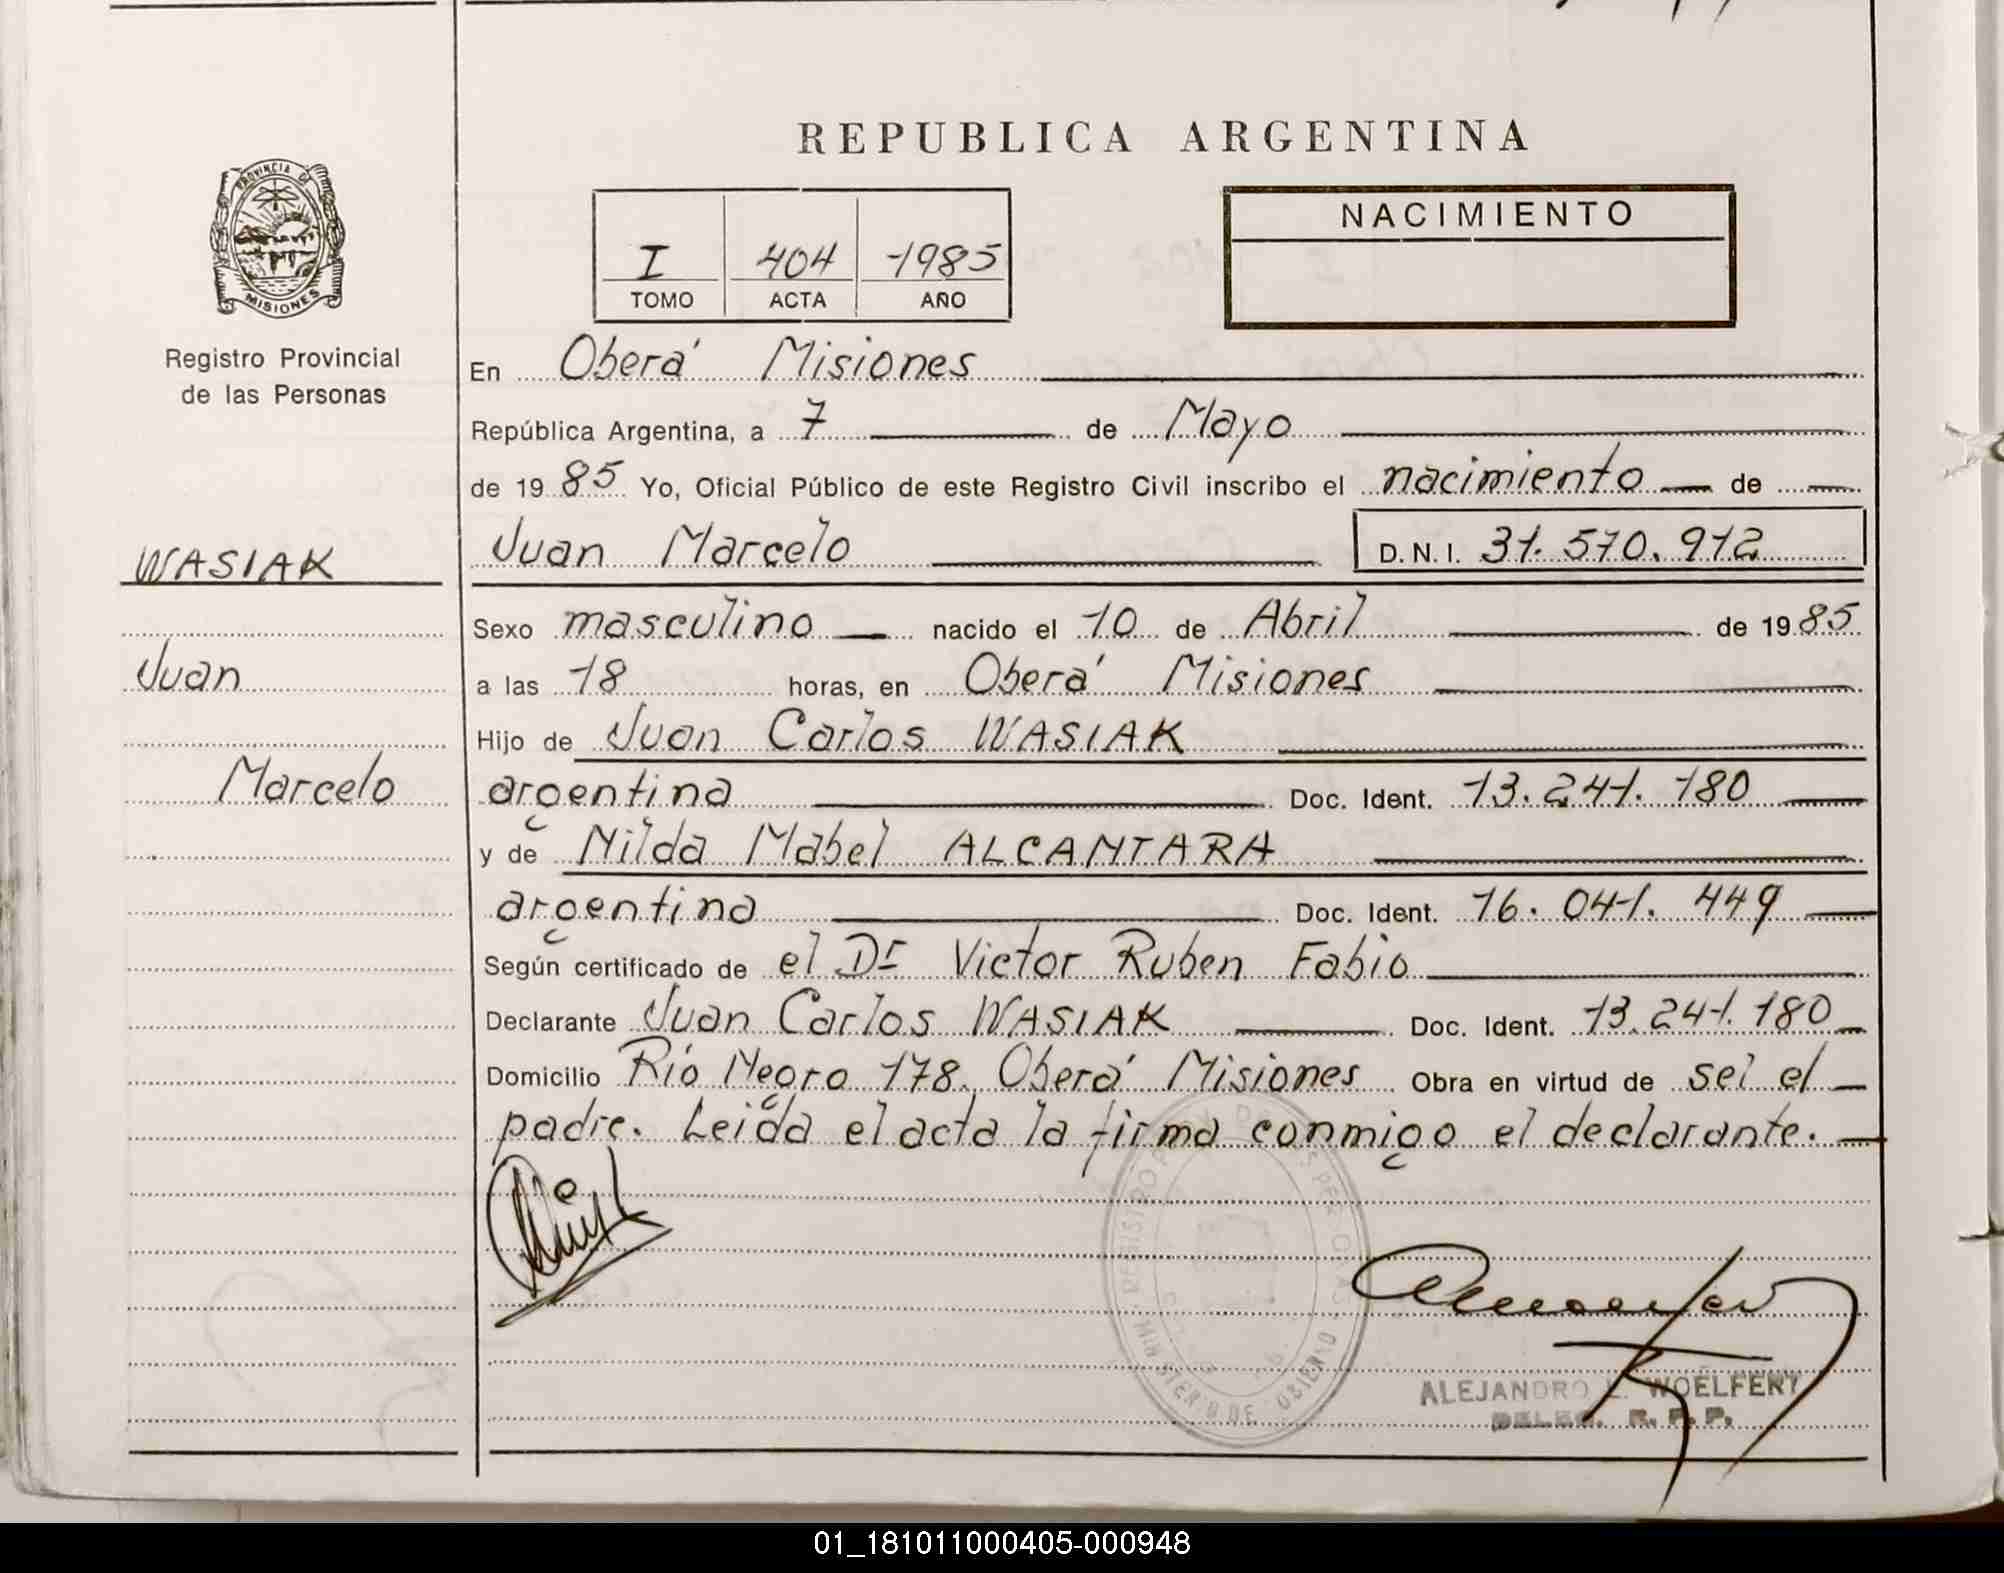 REPUBLICA ARGENTINA
PROVINCIA DE
MISIONES
Registro Provincial
de las Personas
I 404 1985
TOMO ACTA AÑO
NACIMIENTO
En Oberá Misiones
República Argentina, a 7 de Mayo
de 1985 Yo, Oficial Público de este Registro Civil inscribo el nacimiento de
WASIAK
Juan
Marcelo
Juan Marcelo D.N.I. 31.570.912
Sexo masculino nacido el 10 de Abril de 1985
a las 18 horas, en Oberá Misiones
Hijo de Juan Carlos WASIAK
argentina Doc. Ident. 13.241.180
y de Nilda Mabel ALCANTARA
argentina Doc. Ident. 16.041.449
Según certificado de el Dr Victor Ruben Fabio
Declarante Juan Carlos WASIAK Doc. Ident. 13.241.180
Domicilio Río Negro 178. Oberá Misiones Obra en virtud de sel el
padre. Leida el acta la firma conmigo el declarante.
ALEJANDRO L. WOELFERT
DELEG. R. P. P.
01_181011000405-000948